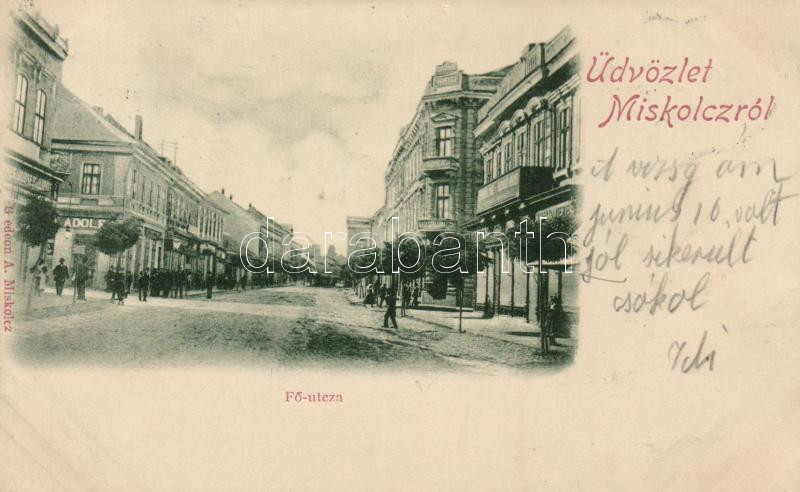 Üdvözlet
Miskolczról
A vizsgám
junius 16. volt
jól sikerült
csókol
ADOLF
darabanth.com
Gedeon A. Miskolcz
Fő-utcza